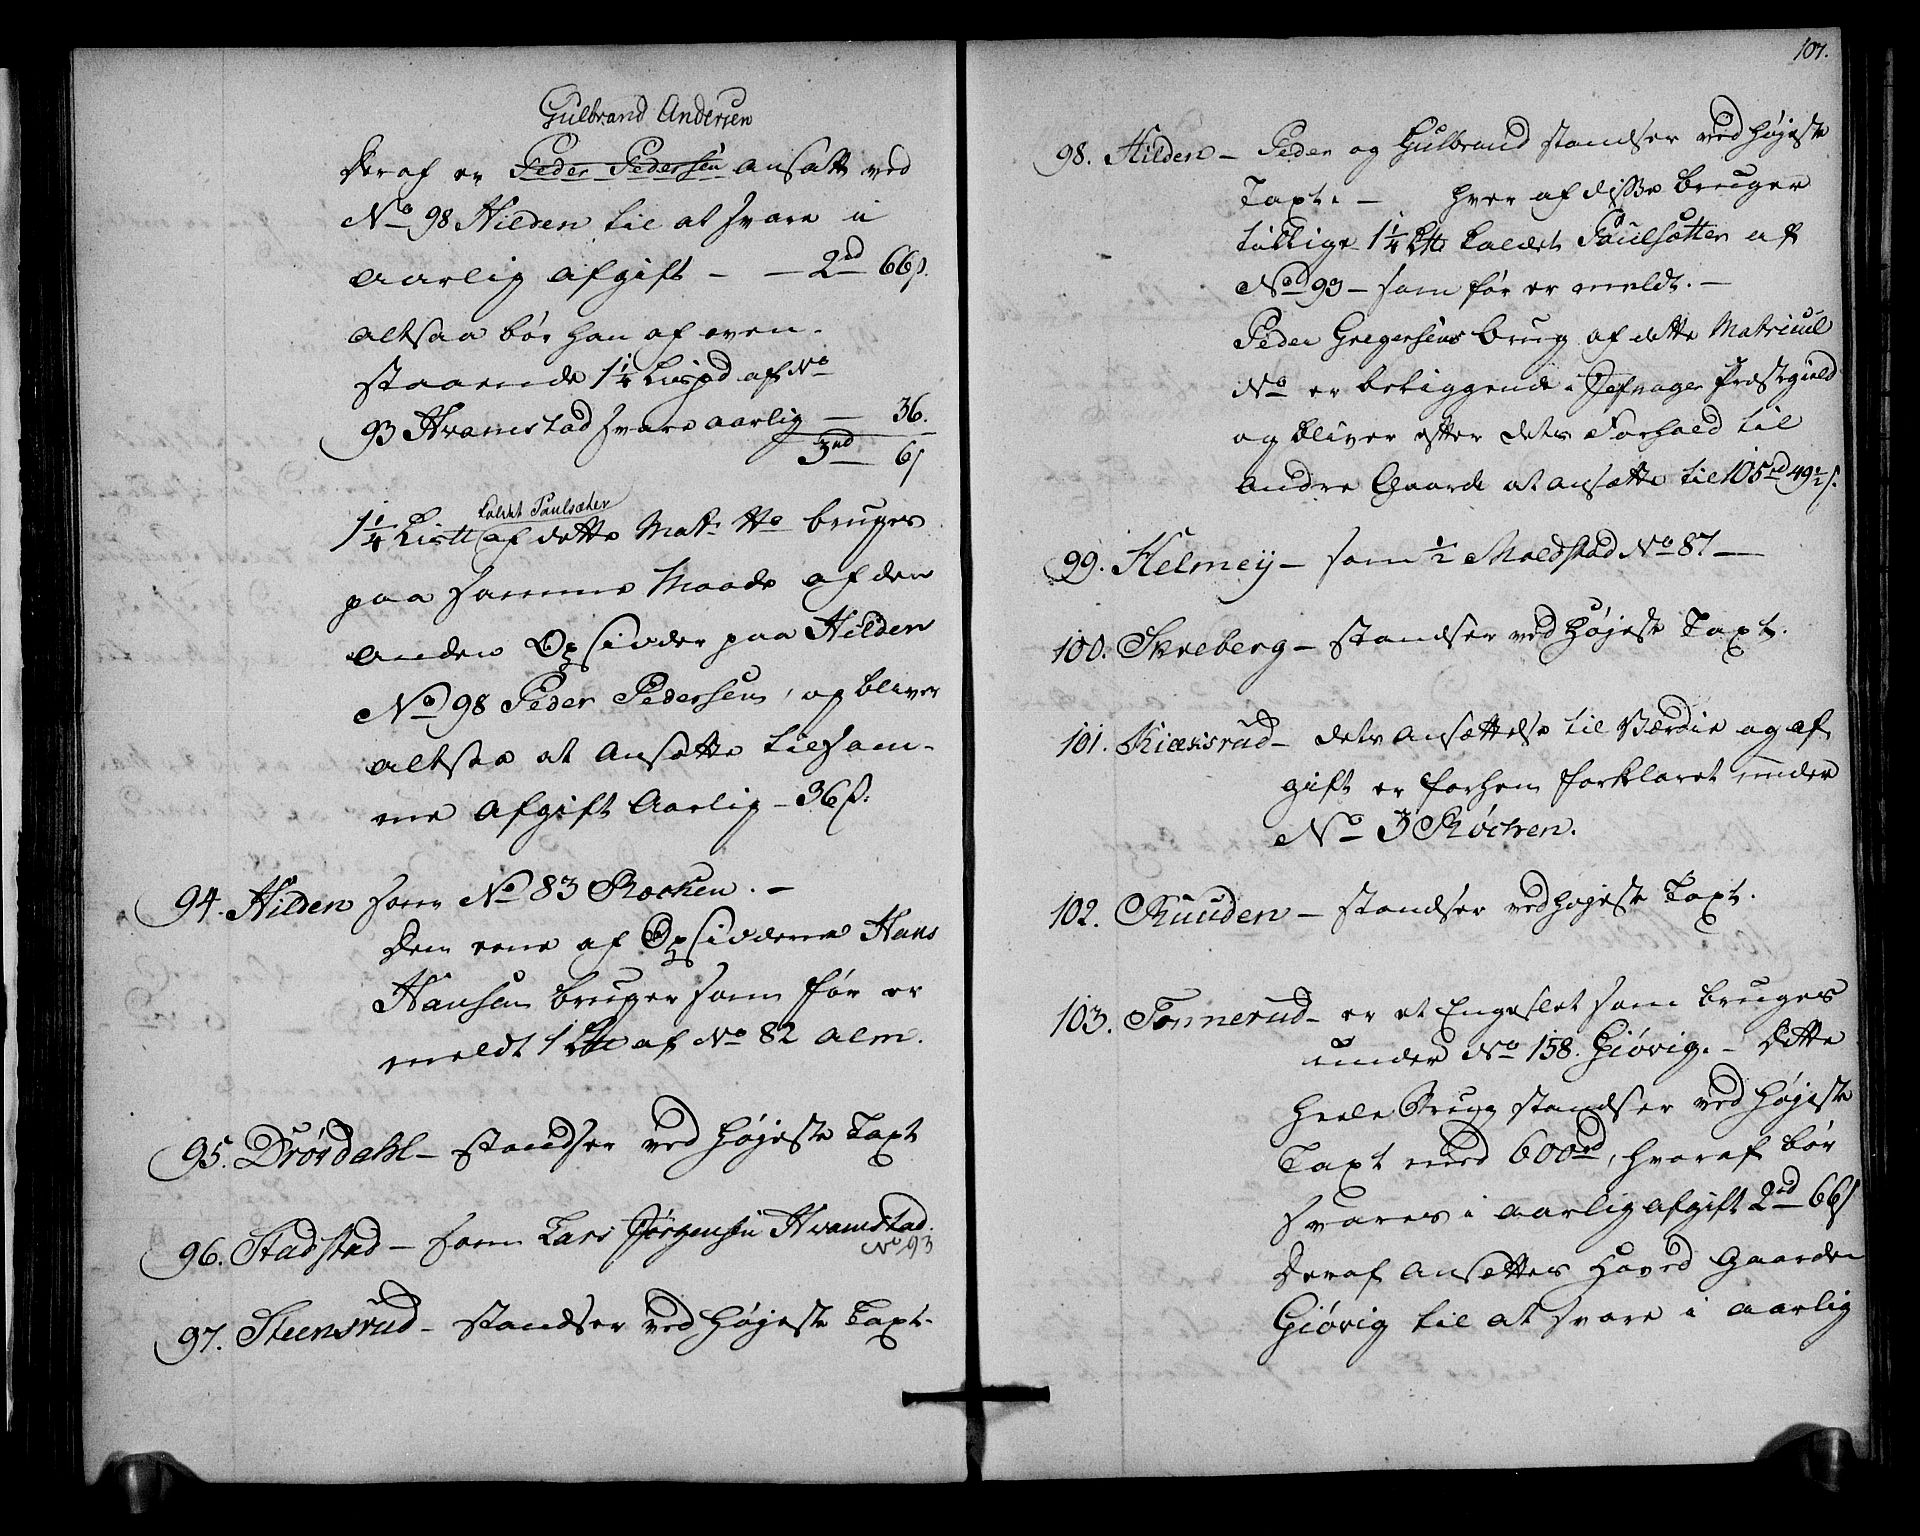 Gulbrand Andersen
deraf er Peder Pedersen ansatt ved
No 98 Hilden til at svare i
aarlig afgift - - 2rd 66s.
altsaa bør han af oven-
staaende 1 1/4 Lispd af No
93 Hvamstad svare aarlig - 36.
3rd 6s
kaldet Paulsæter
1 1/4 Lis℔ af dette Mat: No bruges
paa samme Maade af den
anden Opsidder paa Hilden
No 98 Peder Pedersen, og bliver
altsaa at Ansætte til sam-
me Afgift Aarlig - 36s.
94. Hilden som No 83 Rocken. -
Den eene af Opsidderne Hans
Hansen bruger som før er
meldt 1 L℔ af No 82 Alm.
95. Drørdahl - standser ved højeste Taxt
96. Stadstad - som Lars Jørgensen Hvamstad.
No 93
97. Steensrud - standser ved højeste Taxt.
107.
98. Hilden - Peder og Gulbrand standser ved højeste
Taxt. - hver af disse bruger
tillige 1 1/4 L℔ kaldet Paulsætter af
No 93 - som før er meldt. -
Peder Gregersens brug af dette Matricul
No er beliggende i Jefnager Præstegield
og bliver efter dets Forhold til
andre Gaarde at ansætte til 105rd 49 1/2 s.
99. Helmeÿ - som 1/2 Moldstad No 87 -
100. Skreberg - standser ved højeste Taxt.
101. Kiæksrud - dets Ansættelse til Værdie og af-
gift er forhen forklaret under
No 3 Røchen.
102. Ruuden - standser ved højeste Taxt.
103. Tonnerud - er et Engeslet som bruges
under No 158. Giøvig. - Dette
heele Brug standser ved højeste
Taxt med 600rd, hvoraf bør
svares i aarlig afgift 2rd 66s
Deraf Ansættes Hoved Gaarden
Giøvig til at svare i aarlig